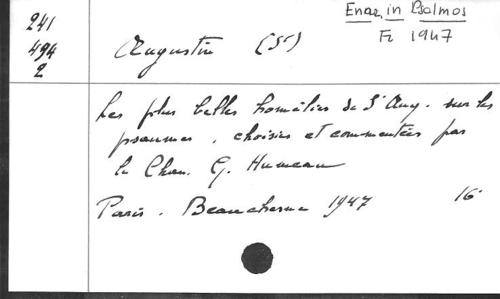 241
494
2
Enar. in Psalmos
Fr 1947
Augustin (St)
Les plus belles homélies de St Aug. sur les
psaumes, choisies et commentées par
le Chan. G. Humeau
Paris. Beauchesne 1947 16°